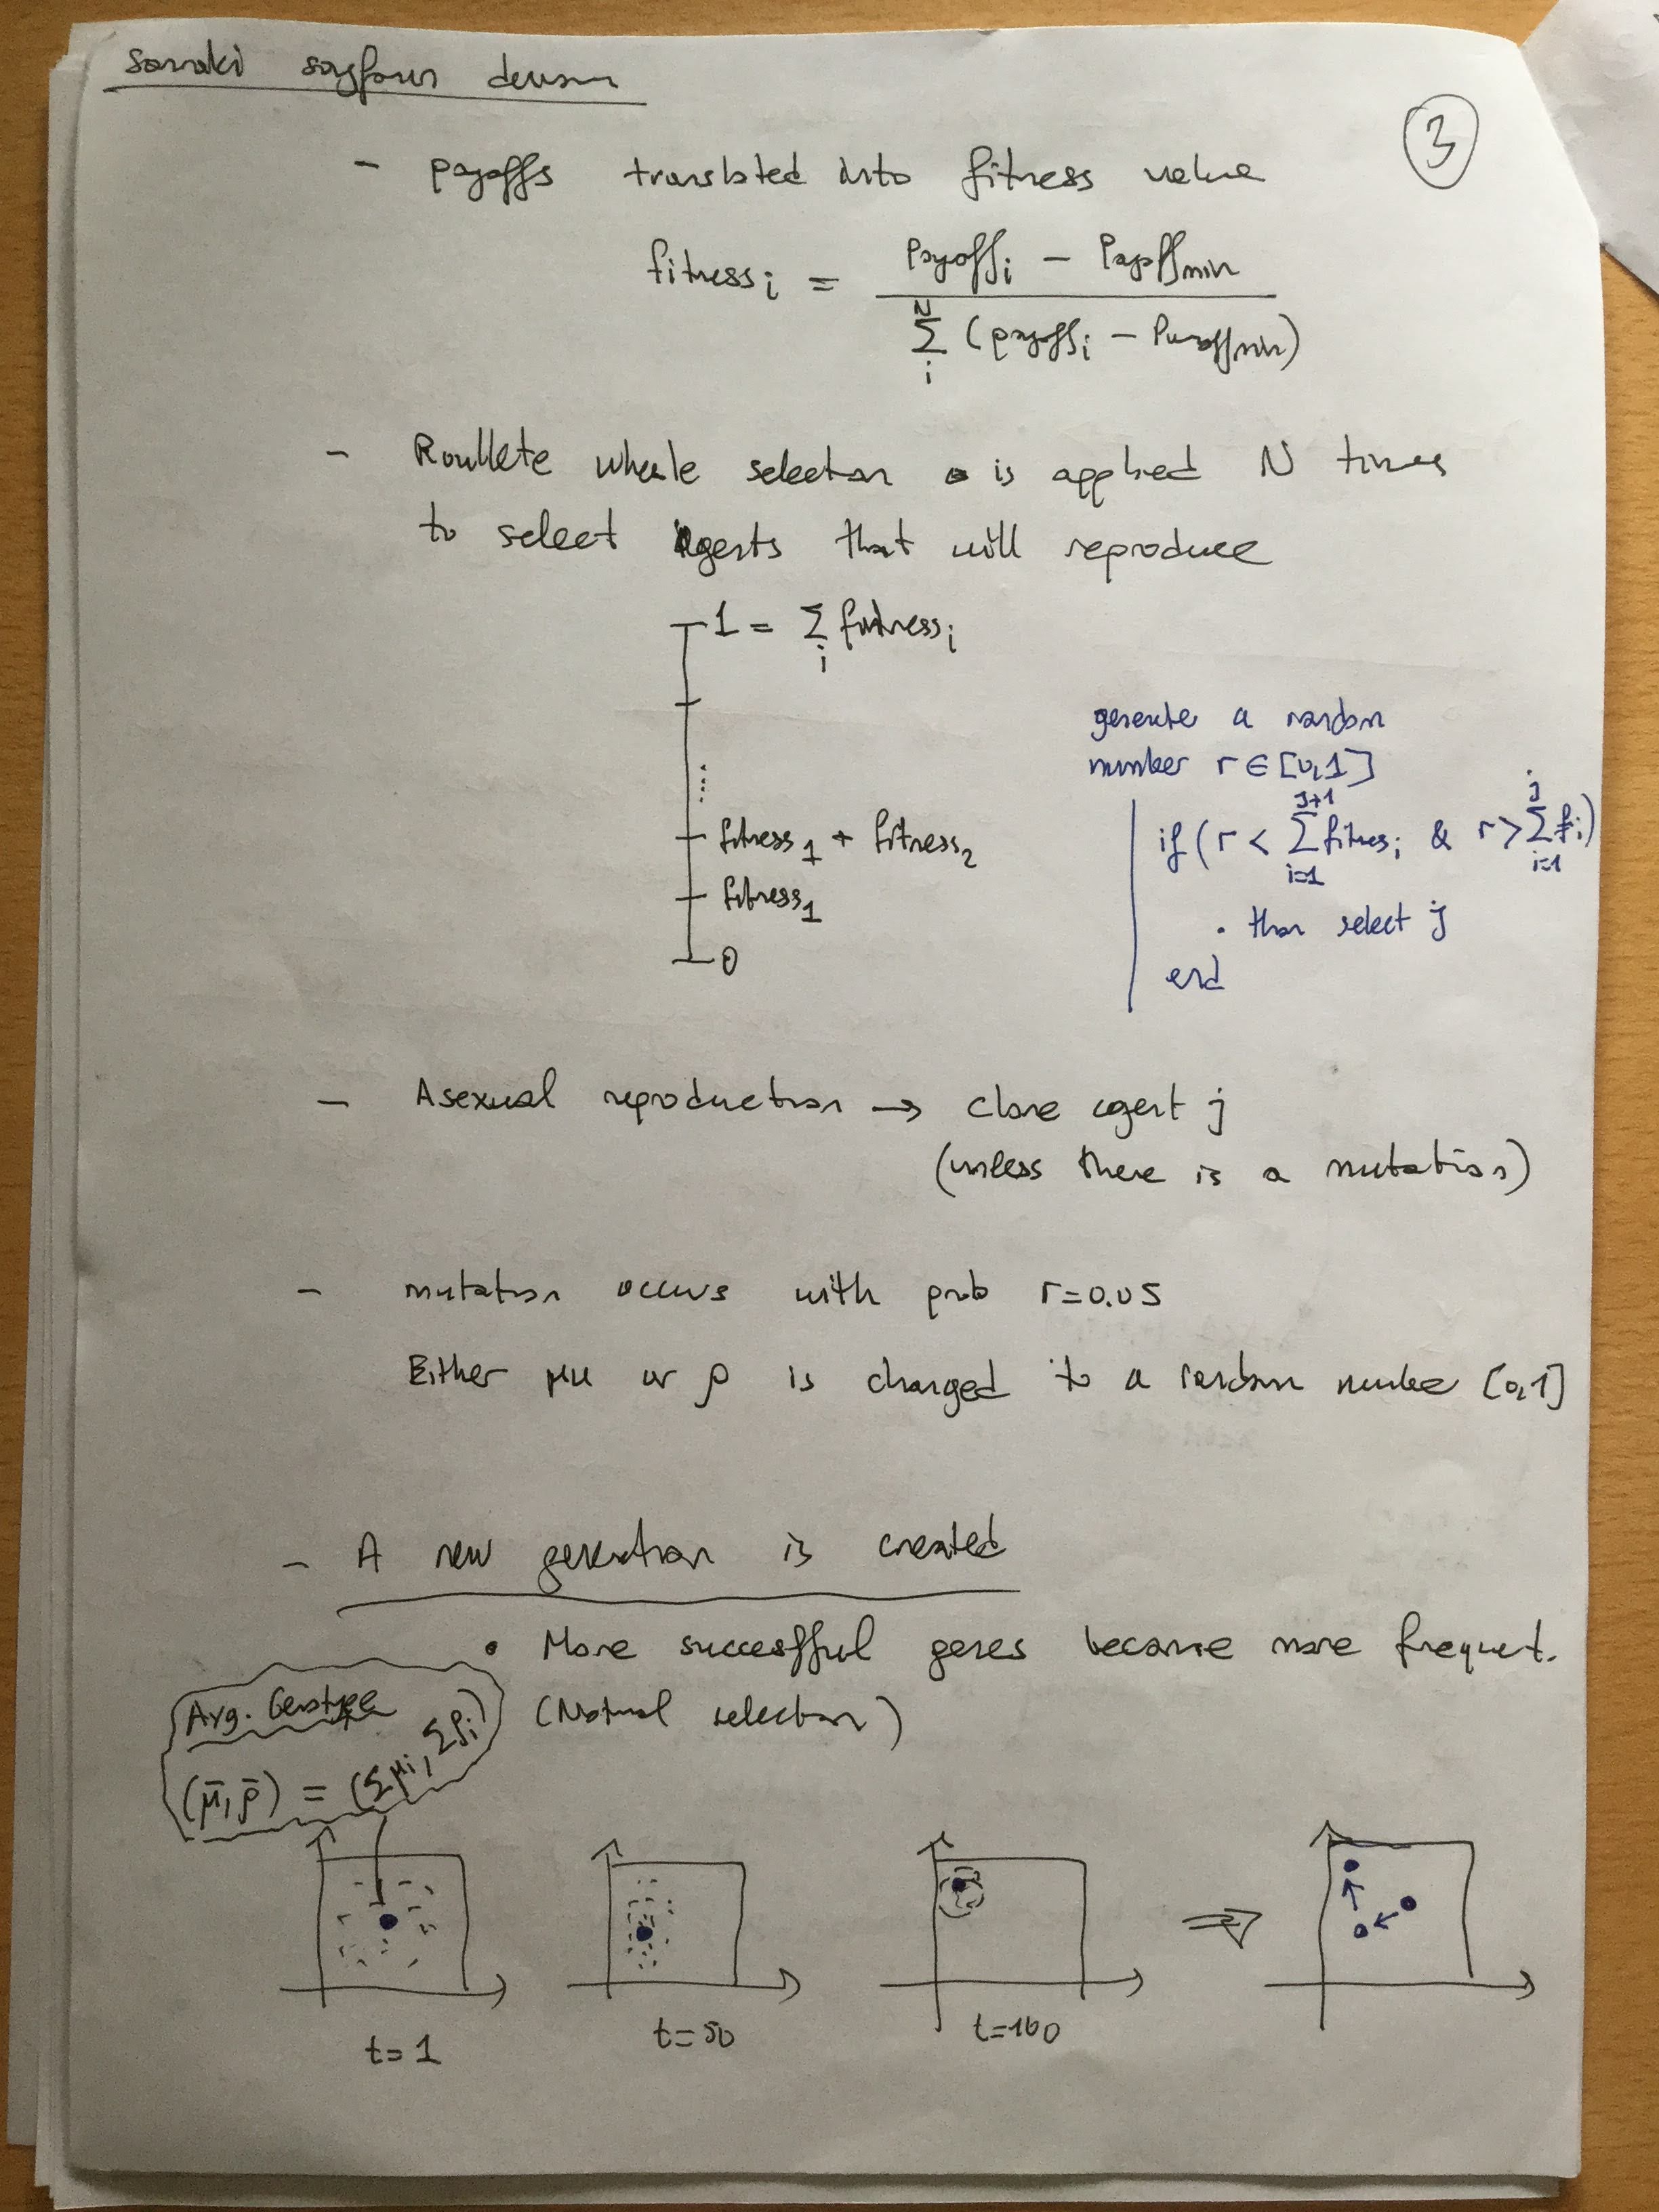 sonraki sayfanın devamı
3
- payoffs translated into fitness value
fitness_i = (Payoff_i - Payoff_min) / (Σ_i^N (payoff_i - Payoff_min))
- Roullete wheele selection is applied N times
to select Agents that will reproduce
1 = Σ_i fitness_i
⋮
fitness_1 + fitness_2
fitness_1
0
generate a random
number r ∈ [0,1]
if (r < Σ_{i=1}^{j+1} fitness_i & r > Σ_{i=1}^{j} f_i)
• then select j
end
- Asexual reproduction → clone agent j
(unless there is a mutation)
- mutation occurs with prob r=0.05
Either μ or ρ is changed to a random number [0,1]
- A new generation is created
• More successful genes become more frequent.
(Natural selection)
Avg. Genotype
(μ̄, ρ̄) = (Σμ_i, Σρ_i)
t=1
t=50
t=100
⇒